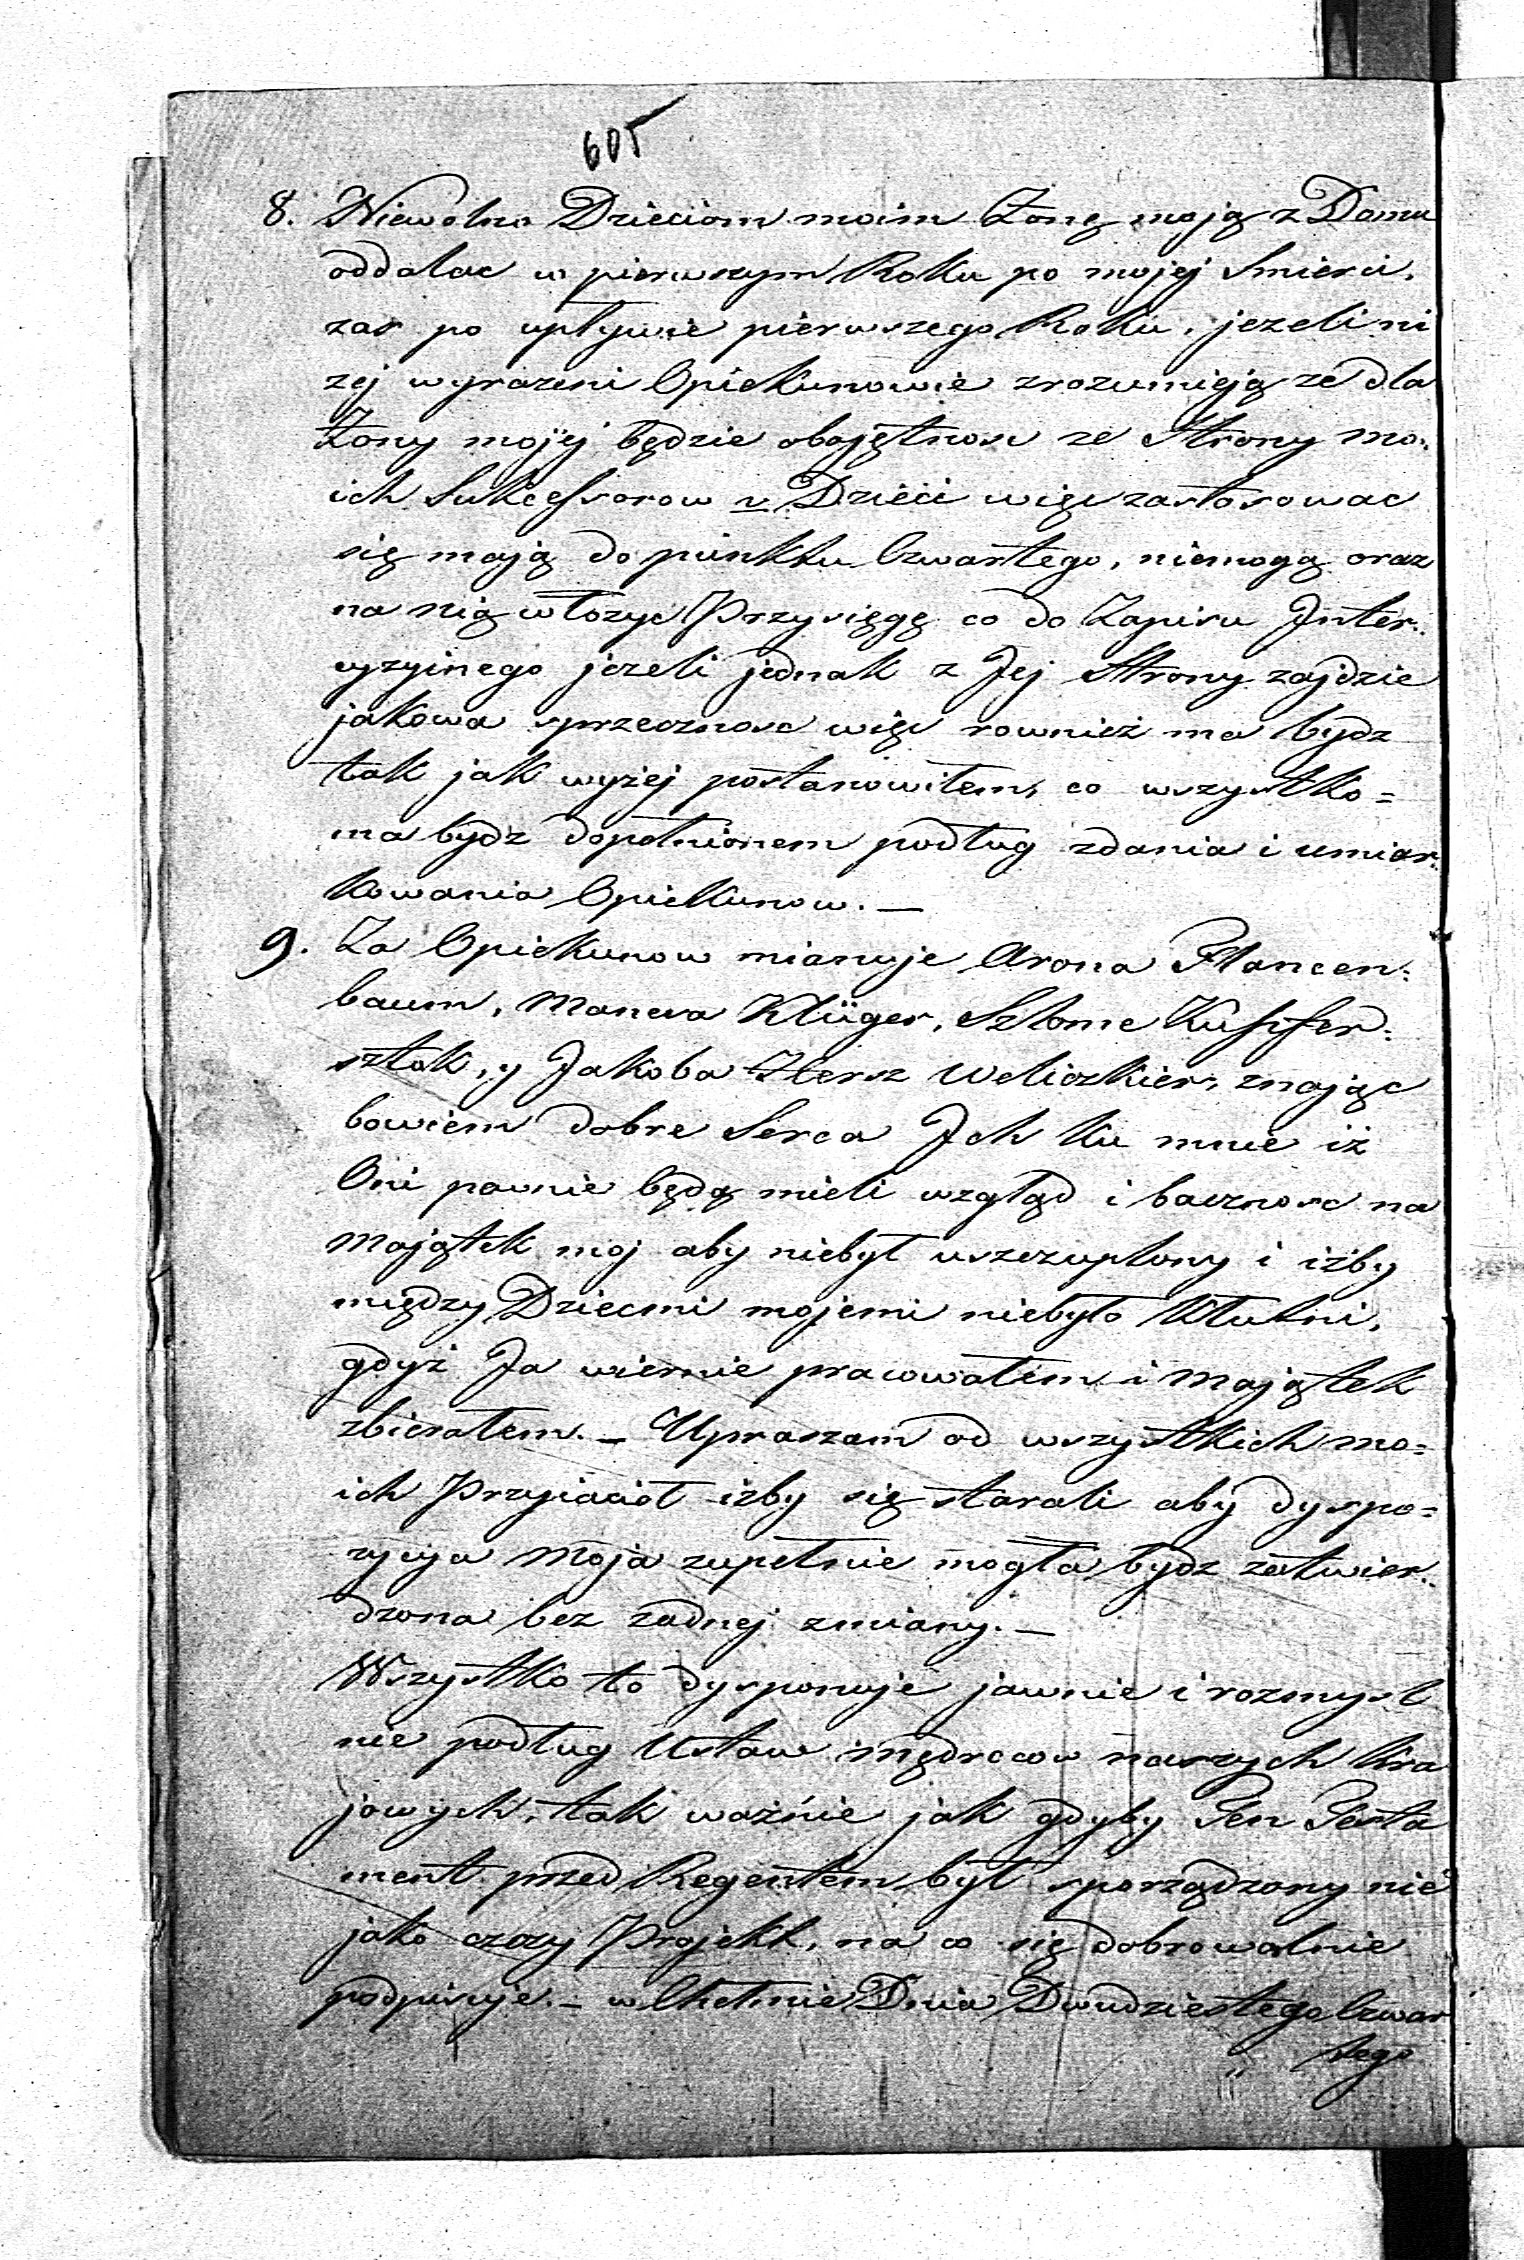 605
8. Niewolno Dzieciom moim Żonę moją z Domu
oddalac w pierwszym Roku po mojej Smierci,
zas po upływie pierwszego Roku, jezeli ni
zej wyrazeni Opiekunowie zrozumieją ze dla
Żony mojej będzie obojętnosc ze Strony mo:
ich Sukcessorow v. Dzieci więc zastosowac
się mają do punktu Czwartego, niemogą oraz
na nią włozyc Przysięgę co do Zapisu Inter:
cyzyinego jezeli jednak z Jej Strony zajdzie
jakowa sprzecznosc więc rownież ma bydz
tak jak wyżej postanowiłem, co wszystko=
ma bydz dopełnionem podług zdania i umiar:
kowania Opiekunow. —
9. Za Opiekunow mianuje Arona Flancen:
baum, Manesa Klüger, Szlome Kupfer:
sztok, y Jakoba Hersz Weliczkier, znając
bowiem dobre Serca Ich ku mnie iż
Oni pewnie będą mieli wzgląd i bacznosc na
Majątek moj aby niebył uszczuplony i iżby
między Dziecmi mojemi niebyło Kłutni,
gdyż Ja wiernie pracowałem i Majątek
zbierałem. — Upraszam od wszystkich mo=
ich Przyiaciół iżby się starali aby dyspo=
zycya Moja zupełnie mogła bydz zatwier:
dzona bez zadnej zmiany. —
Wszystko to dysponuje jawnie i rozmysl
nie podług Ustaw mędrcow naszych Kra
jowych, tak ważnie jak gdyby Ten Testa
ment przed Regentem był sporządzony nie
jako czczy Projekt, na co się dobrowolnie
podpisuje. — w Chełmie Dnia Dwudziestego Czwar
tego